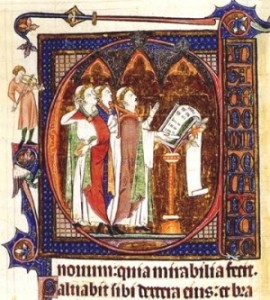 nouum: quia mirabilia fecit.
Saluabit sibi dextera eius: et bra